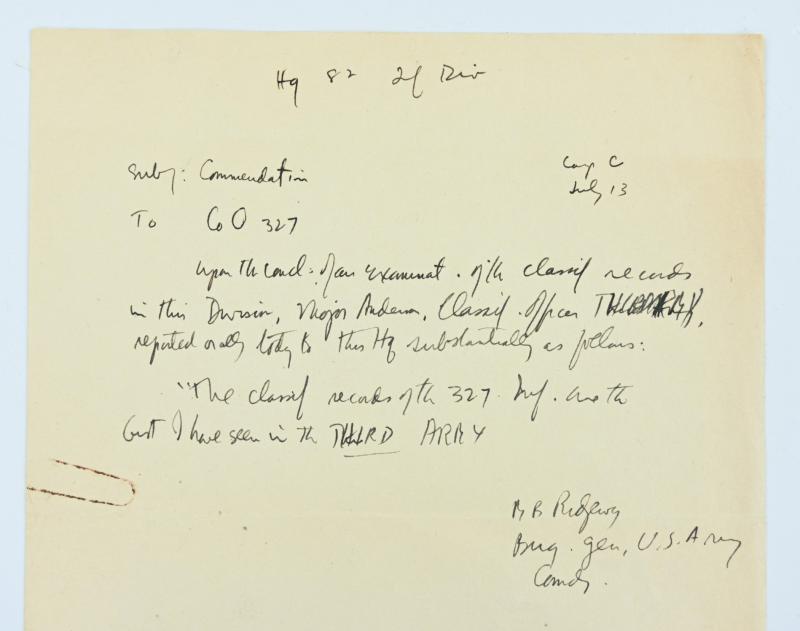 Hq 82 Inf Div
Camp C
July 13
Subj: Commendation
To Co O 327
Upon th concl. of an examinat. of th classif records
in this Division, Major Anderson, Classif. Officer THIRD ARMY,
reported orally today to this Hq substantially as follows:
"The classif records of th 327 Inf. are th
best I have seen in th THIRD ARMY
M B Ridgway
Brig. gen, U.S. Army
Comdg.